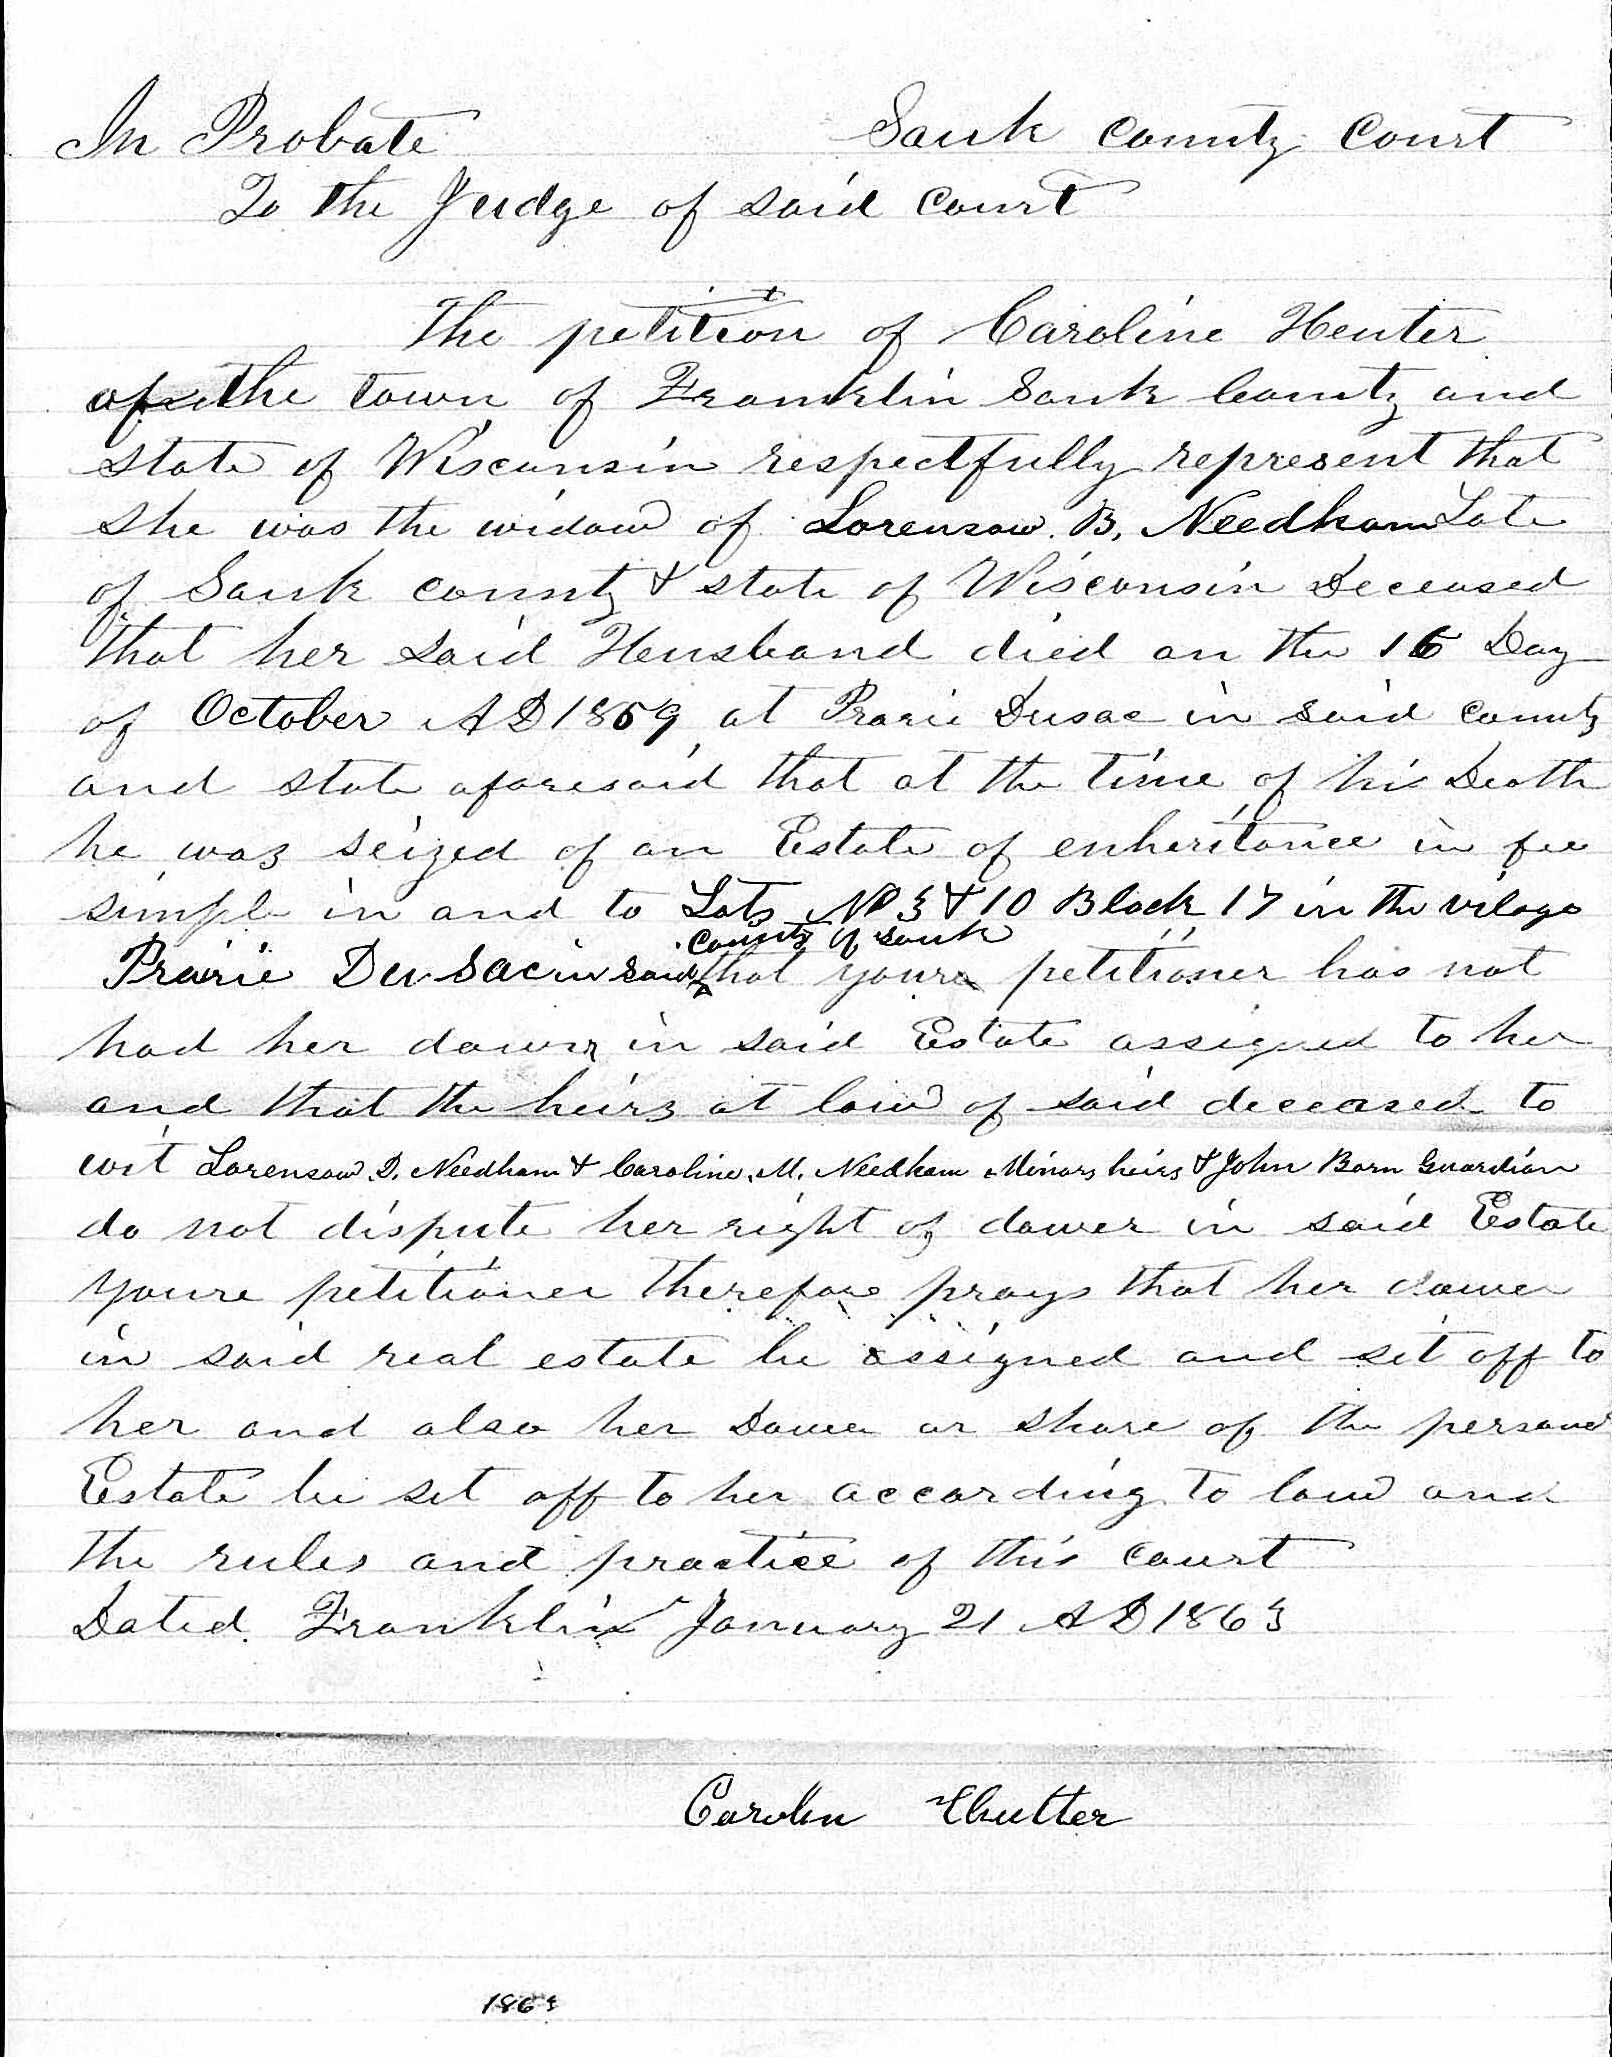 In Probate Sauk County Court
To the Judge of said Court
The petition of Caroline Henter
of the town of Franklin Sauk County and
state of Wisconsin respectfully represent that
she was the widow of Lorensow. B. Needham Late
of Sauk county & state of Wisconsin Deceased
that her said Heusband died on the 16 Day
of October AD 1859 at Prarie Dusac in said county
and state aforesaid that at the time of his Death
he was seized of an Estate of enheritance in fee
simple in and to Lots No 3 & 10 Block 17 in the vilage
County of Sauk
Prairie Du Sac in said that youre petitioner has not
had her dower in said Estate assigned to her
and that the heirs at law of said deceased to
wit Lorensow. D. Needham & Caroline. M. Needham Minors heirs & John Born Guardian
do not dispute her right of dower in said Estate
youre petitioner therefore prays that her dower
in said real estate be assigned and set off to
her and also her Dower or share of the personal
Estate be set off to her according to law and
the rules and practice of this court
Dated. Franklin January 21 AD 1863
Carolin Hutter
1863